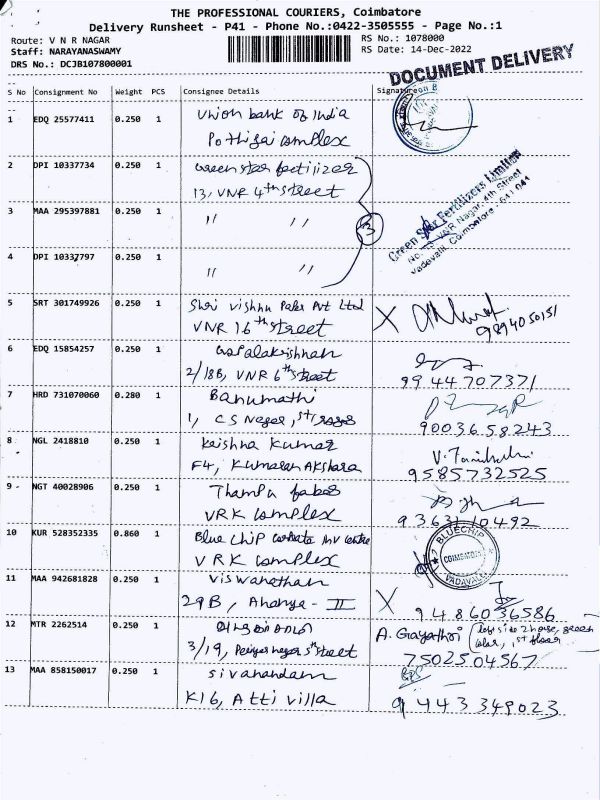 THE PROFESSIONAL COURIERS, Coimbatore
Delivery Runsheet - P41 - Phone No.:0422-3505555 - Page No.:1
Route: V N R NAGAR
RS No.: 1078000
Staff: NARAYANASWAMY
RS Date: 14-Dec-2022
DRS No.: DCJB107800001
DOCUMENT DELIVERY
S No Consignment No Weight PCS Consignee Details Signature
1 EDQ 25577411 0.250 1 Union bank of India
Pothigai complex
2 DPI 10337734 0.250 1 Green star fertilizer
13, VNR 4th street
3 MAA 295397881 0.250 1 " "
3
Green Star Fertilizers Limited
No. 13, VNR Nagar, 4th Street
Vadavalli, Coimbatore - 641 041
4 DPI 10337797 0.250 1 " "
5 SRT 301749926 0.250 1 Shri Vishnu Pvt Ltd
VNR 16th street
X
9894050151
6 EDQ 15854257 0.250 1 Gopalakrishnan
2/18B, VNR 6th street
9944707371
7 HRD 731070060 0.280 1 Banumathi
1, CS Nagar, 1st
9003658243
8 NGL 2418810 0.250 1 Krishna Kumar
F4, Kumaran Akshara
9585732525
9 NGT 40028906 0.250 1 Thampu
VRK complex
9363110492
10 KUR 528352335 0.860 1 Blue chip Inv centre
VRK complex
BLUECHIP
COIMBATORE
VADAVALLI
11 MAA 942681828 0.250 1 Viswanathan
29B, Ananya - II
X
9486036586
12 MTR 2262514 0.250 1
3/19, Periyanagar street
A. Gayathri (left side 2 house, green
color, 1st floor)
7502504567
13 MAA 858150017 0.250 1 Sivanandam
K16, Atti villa
9443349023